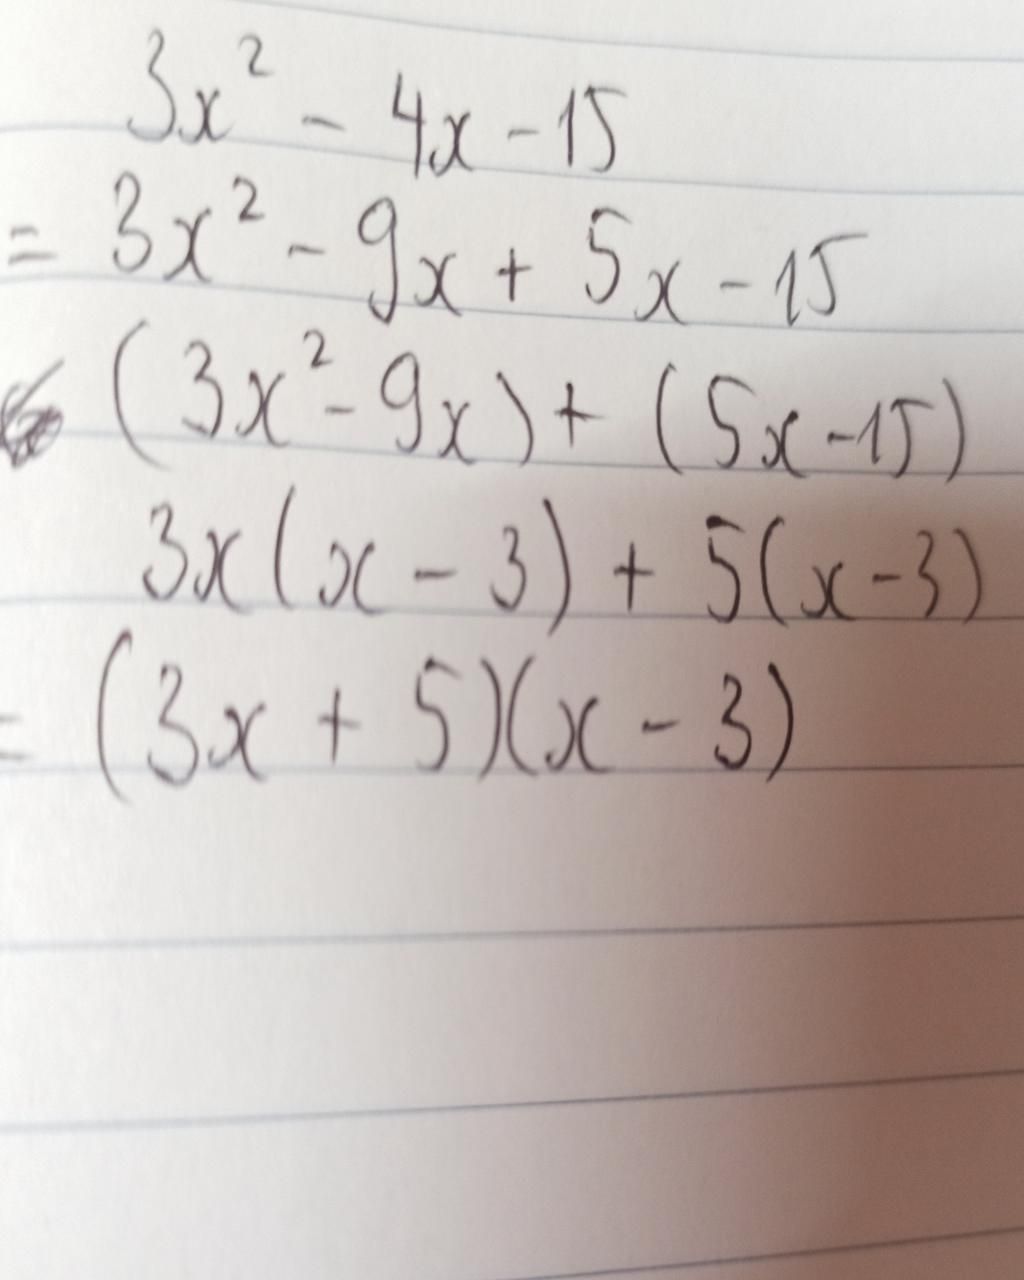 3x² - 4x - 15
= 3x² - 9x + 5x - 15
(3x² - 9x) + (5x - 15)
3x(x - 3) + 5(x - 3)
= (3x + 5)(x - 3)